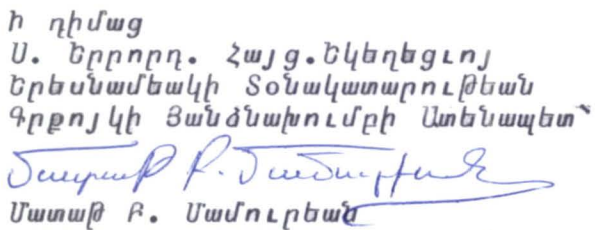 Ի դիմաց
Ս. Երրորդ. Հայց.Եկեղեցւոյ
Երեսնամեակի Տօնակատարութեան
Գրքոյկի Յանձնախումբի Ատենապետ՝
Մատաթ Ք. Մամուրեան